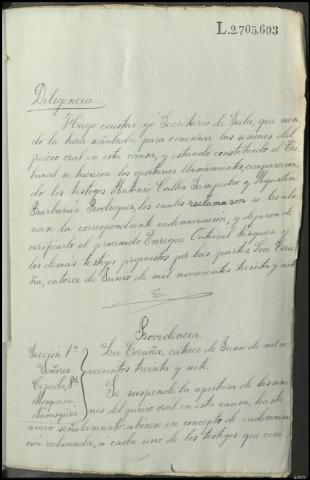 L.2705.603
Diligencia.
Hago constar yo Secretario de Sala, que sien-
do la hora señalada para comenzar las sesiones del
juicio oral en esta causa, y estando constituido el Tri-
bunal se hicieron los oportunos llamamientos, comparecien-
do los testigos Antonio Sampedro y Agustin
Rodriguez, los cuales reclamaron se les abo-
nase la correspondiente indemnización; y dejaron de
verificarlo el procesado Enrique y
los demás testigos propuestos por las partes. La Coru-
ña, catorce de Junio de mil novecientos treinta y siete
Providencia.
Sección 1ª La Coruña, catorce de Junio de mil no-
Señores vecientos treinta y siete.
Cepeda, Pte Se suspende la apertura de las sesio-
nes del juicio oral en esta causa, hasta
nuevo señalamiento: abónese en concepto de indemniza-
ción reclamada, á cada uno de los testigos que com-